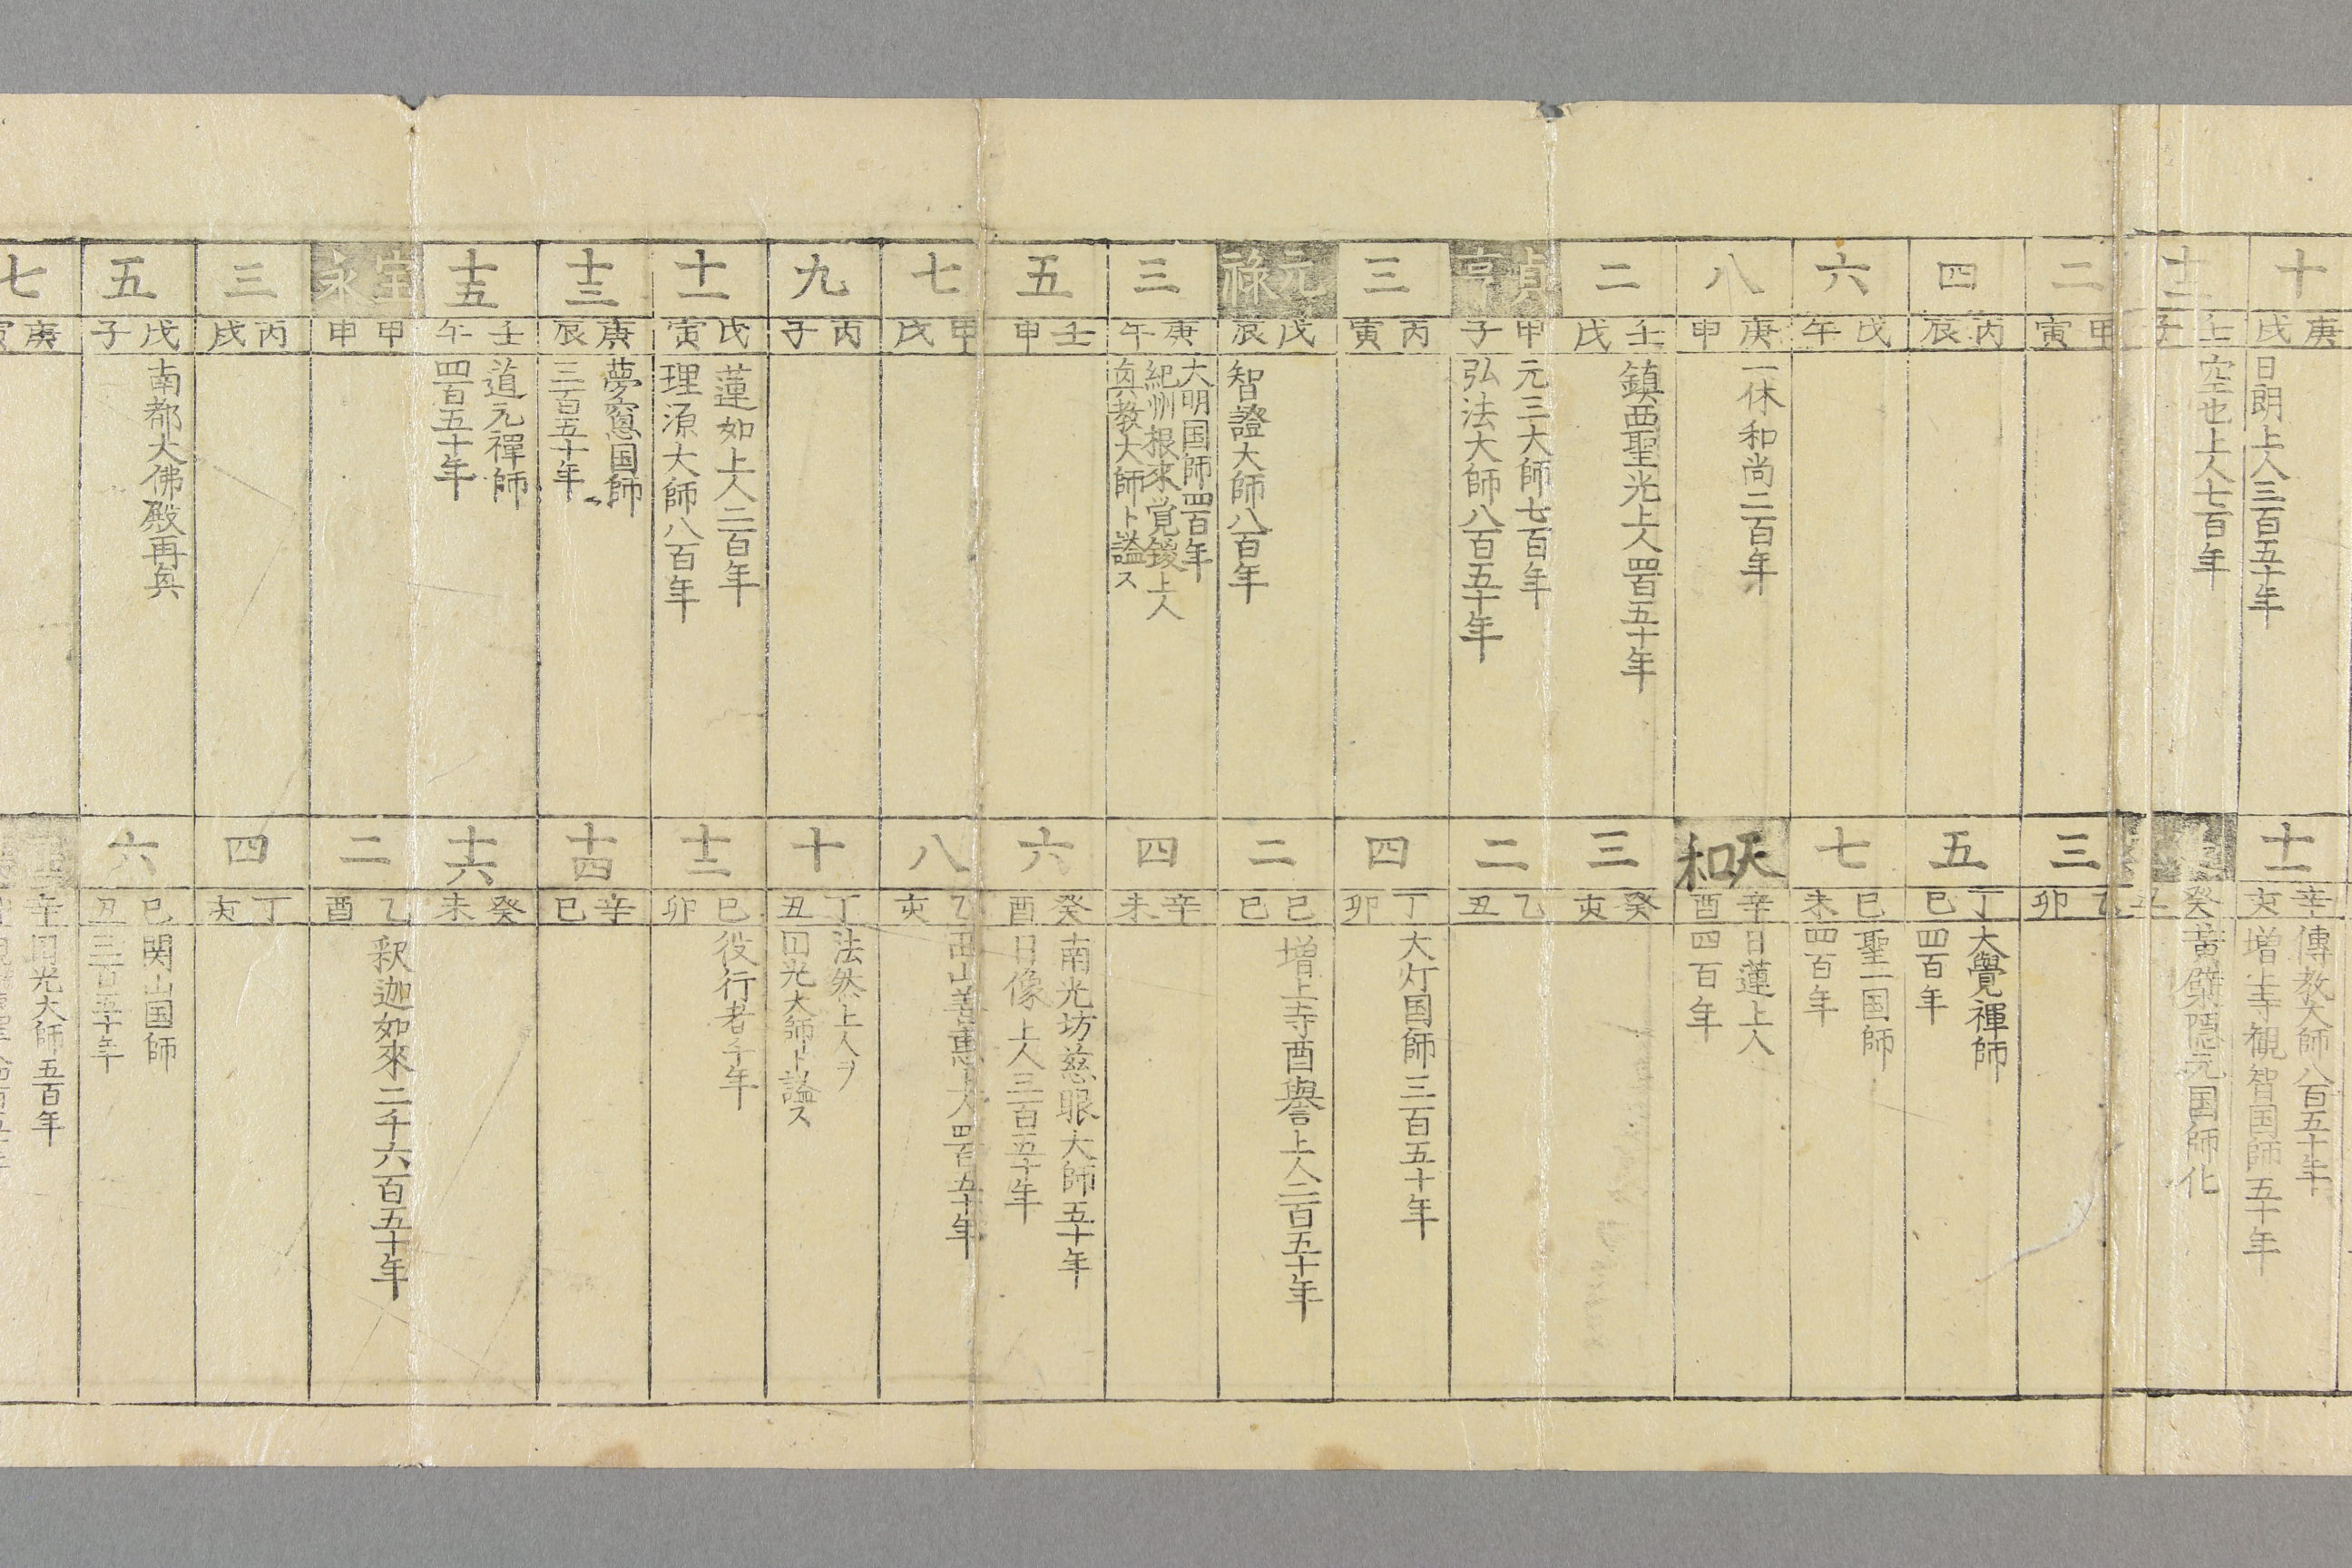 十
庚戌
日朗上人三百五十年
十一
辛亥
傳教大師八百五十年
増上寺観智国師五十年
十二
壬子
空也上人七百年
癸丑
黄檗隠元国師化
二
甲寅
三
乙卯
四
丙辰
五
丁巳
大覺禪師
四百年
六
戊午
七
己未
聖一国師
四百年
八
庚申
一休和尚二百年
天和
辛酉
日蓮上人
四百年
二
壬戌
鎮西聖光上人四百五十年
三
癸亥
貞享
甲子
元三大師七百年
弘法大師八百五十年
二
乙丑
三
丙寅
四
丁卯
大灯国師三百五十年
元禄
戊辰
智證大師八百年
二
己巳
増上寺酉譽上人二百五十年
三
庚午
大明国師四百年
紀州根來覚鑁上人
興教大師ト謚ス
四
辛未
五
壬申
六
癸酉
南光坊慈眼大師五十年
日像上人三百五十年
七
甲戌
八
乙亥
西山善恵上人四百五十年
九
丙子
十
丁丑
法然上人ヲ
円光大師ト謚ス
十一
戊寅
蓮如上人二百年
理源大師八百年
十二
己卯
役行者千年
十三
庚辰
夢窓国師
三百五十年
十四
辛巳
十五
壬午
道元禪師
四百五十年
十六
癸未
宝永
甲申
二
乙酉
釈迦如來二千六百五十年
三
丙戌
四
丁亥
五
戊子
南都大佛殿再興
六
己丑
関山国師
三百五十年
七
庚寅
辛
円光大師五百年